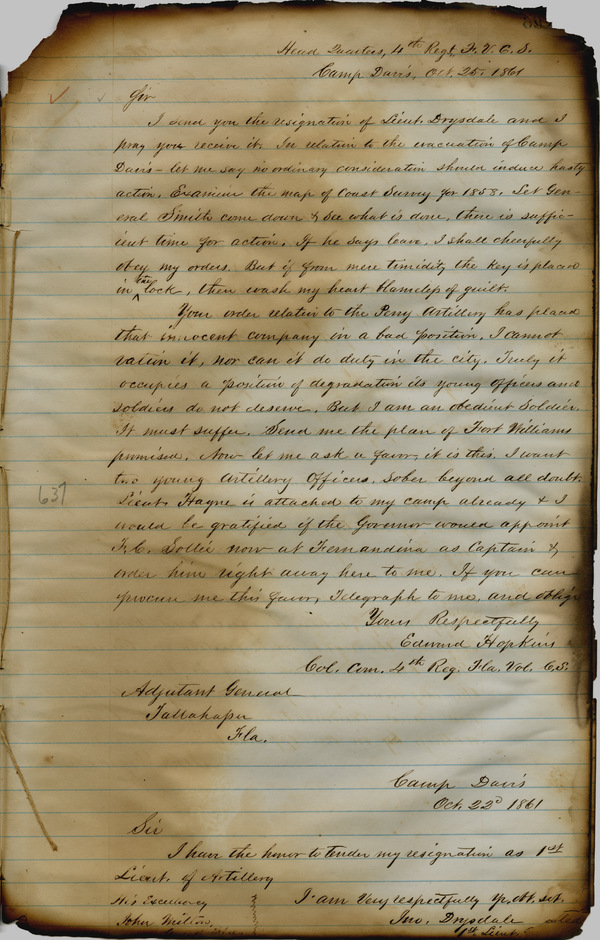 Head Quarters, 4th Regt F. V. C. S.
Camp Davis, Oct. 25, 1861
Sir
I send you the resignation of Lieut. Drysdale and I
pray you receive it. In relation to the evacuation of Camp
Davis – let me say no ordinary consideration should induce hasty
action. Examine the map of Coast Survey for 1858. Let Gen-
eral Smith come down & see what is done, there is suffic-
ient time for action. If he says leave, I shall cheerfully
obey my orders. But if from mere timidity the key is placed
in the lock, then wash my heart & handclep of guilt.
Your order relative to the Perry Artillery has placed
that innocent company in a bad position. I cannot
ration it, nor can it do duty in the city. Truly it
occupies a position of degradation its young officers and
soldiers do not deserve. But I am an obedient Soldier.
It must suffer. Send me the plan of Fort Williams
promised. Now let me ask a favor, it is this. I want
two young Artillery Officers, Sober beyond all doubt.
Lieut. Hayne is attached to my camp already & I
would be gratified if the Governor would appoint
F. C. Sollee now at Fernandina as Captain &
order him right away here to me. If you can
procure me this favor, Telegraph to me, and oblige
Yours Respectfully
Edward Hopkins
Col. Com. 4th Reg. Fla. Vol. C.S.
637
Adjutant General
Tallahassee
Fla.
Camp Davis
Oct. 22d 1861
Sir
I have the honor to tender my resignation as 1st
Lieut. of Artillery
His Excellency I am Very respectfully Yr. obt. svt.
John Milton, Jno. Drysdale
1st Lieut.